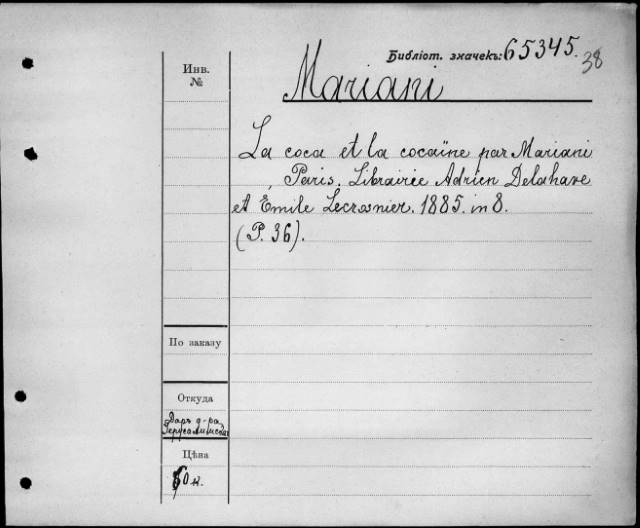 Библіот. значекъ: 65345.
38
Инв. №
Mariani
La coca et la cocaïne par Mariani
, Paris. Librairie Adrien Delahaye
et Emile Lecrosnier. 1885. in 8.
(P. 36).
По заказу
Откуда
Даръ д-ра
Цѣна
60 к.